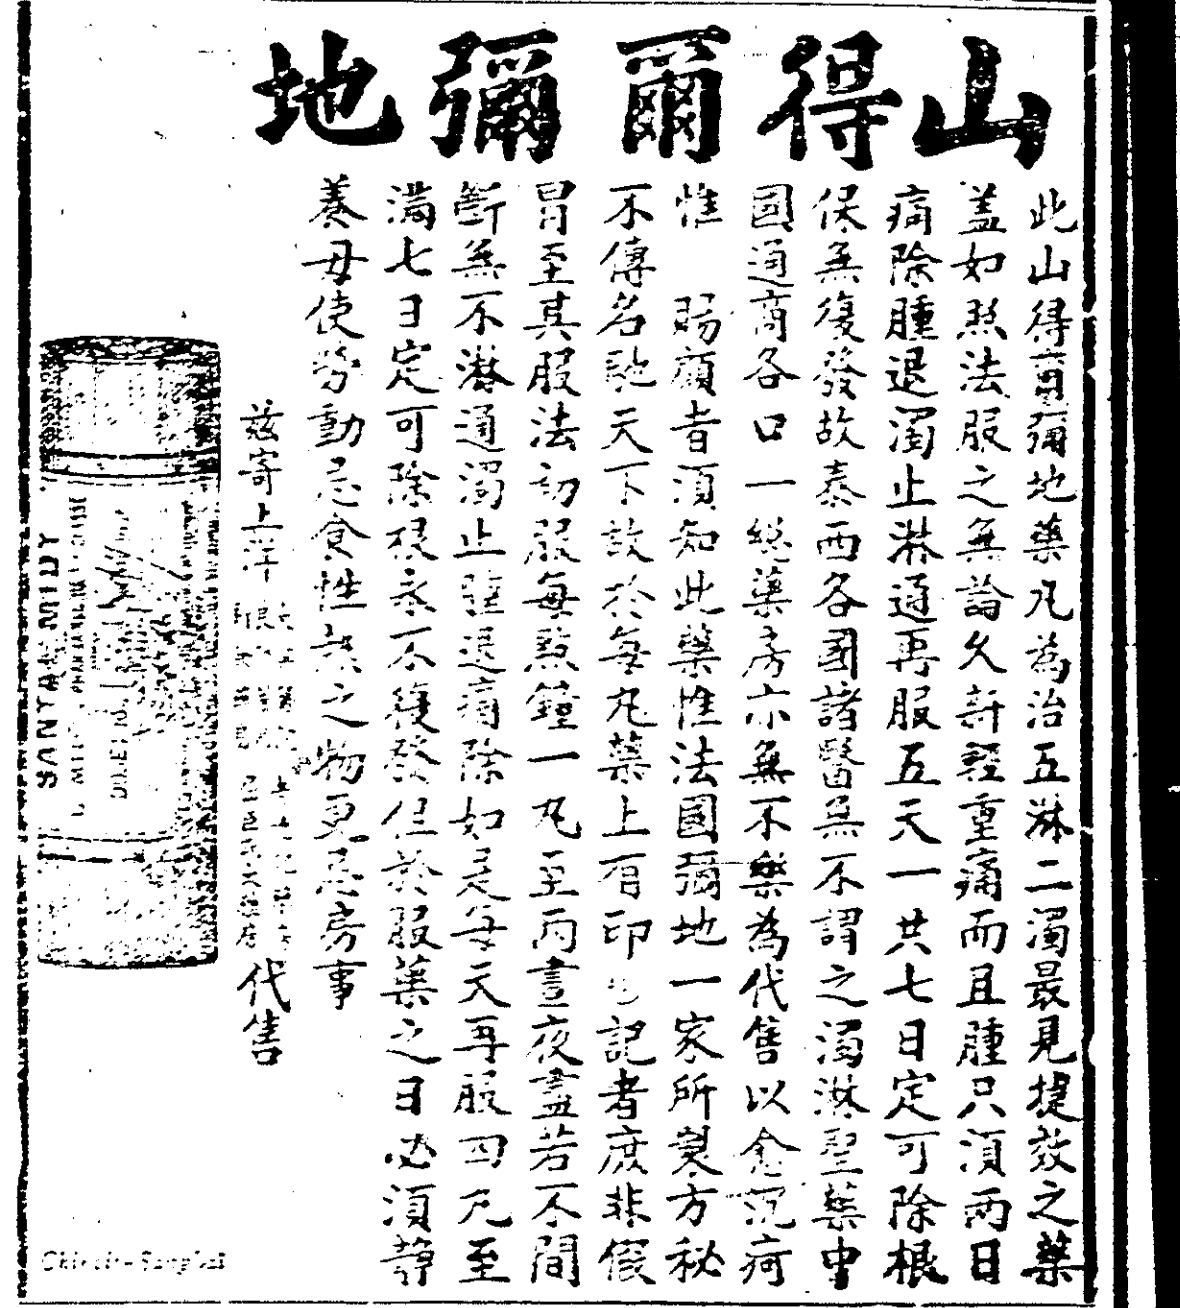 山得爾彌地
此山得爾彌地藥凡為治五淋二濁最見捷效之藥
蓋如照法服之無論久新輕重痛而且腫只須兩日
痛除腫退濁止淋通再服五天一共七日定可除根
保無復發故泰西各國諸醫無不謂之濁淋聖藥中
國通商各口一總藥房亦無不樂為代售以愈沉疴
惟 賜顧者須知此藥惟法國彌地一家所製方秘
不傳名馳天下故於每丸藥上有印 記者庶非假
冒至其服法初服每點鐘一丸至丙晝夜盡若不間
斷無不淋通濁止腫退痛除如是每天再服四丸至
滿七日定可除根永不復發但於服藥之日必須靜
養毋使勞動忌食性熱之物更忌房事
茲寄上洋
代售
SANTAL MIDY